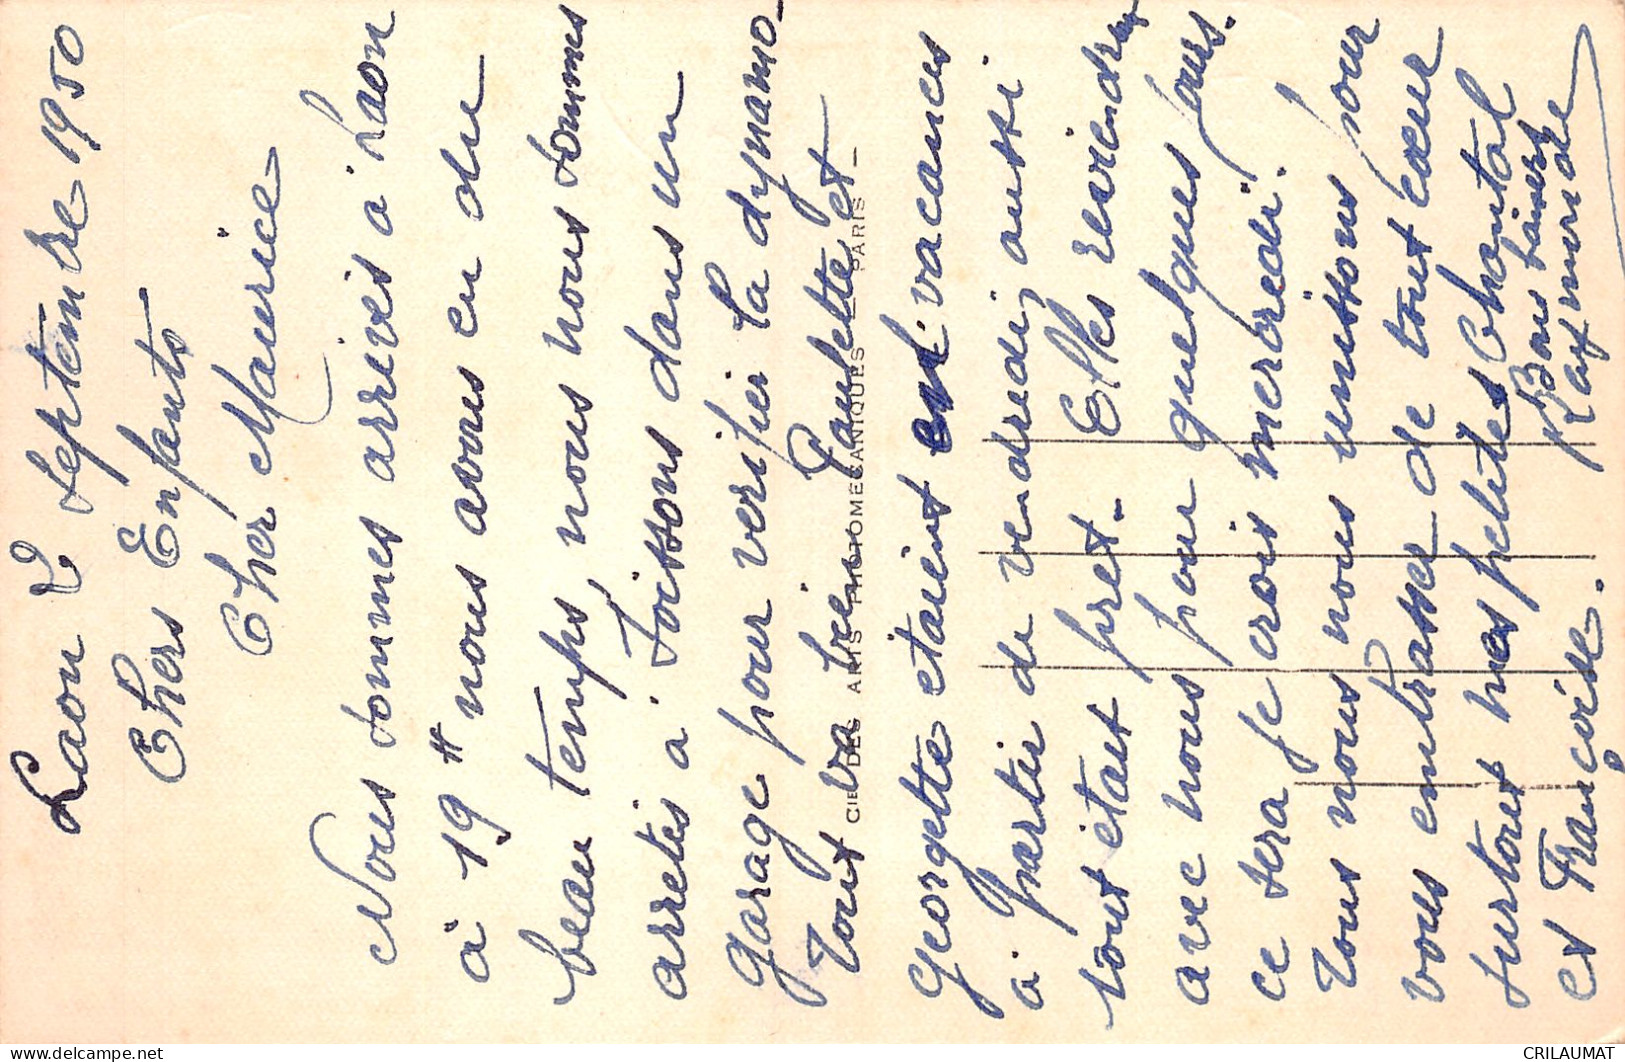 Laon 2 septembre 1950
Chers Enfants
Cher Maurice
Nous sommes arrivés à Laon
à 19 H nous avons eu du
beau temps, nous nous sommes
arretés a Soissons dans un
garage pour verifier la dynamo-
Tout va bien. Paulette et
CIE DES ARTS PHOTOMECANIQUES — PARIS —
Georgette etaient en vacances
a partir de vendredi, aussi
tout etait pret- Elles reviendront
avec nous pour quelques jours.
ce sera je crois mercredi.
Tous nous nous unissons pour
vous embrasser de tout cœur
surtout mes petites Chantal
et Françoise.
Bons baisers
Raymonde
CRILAUMAT